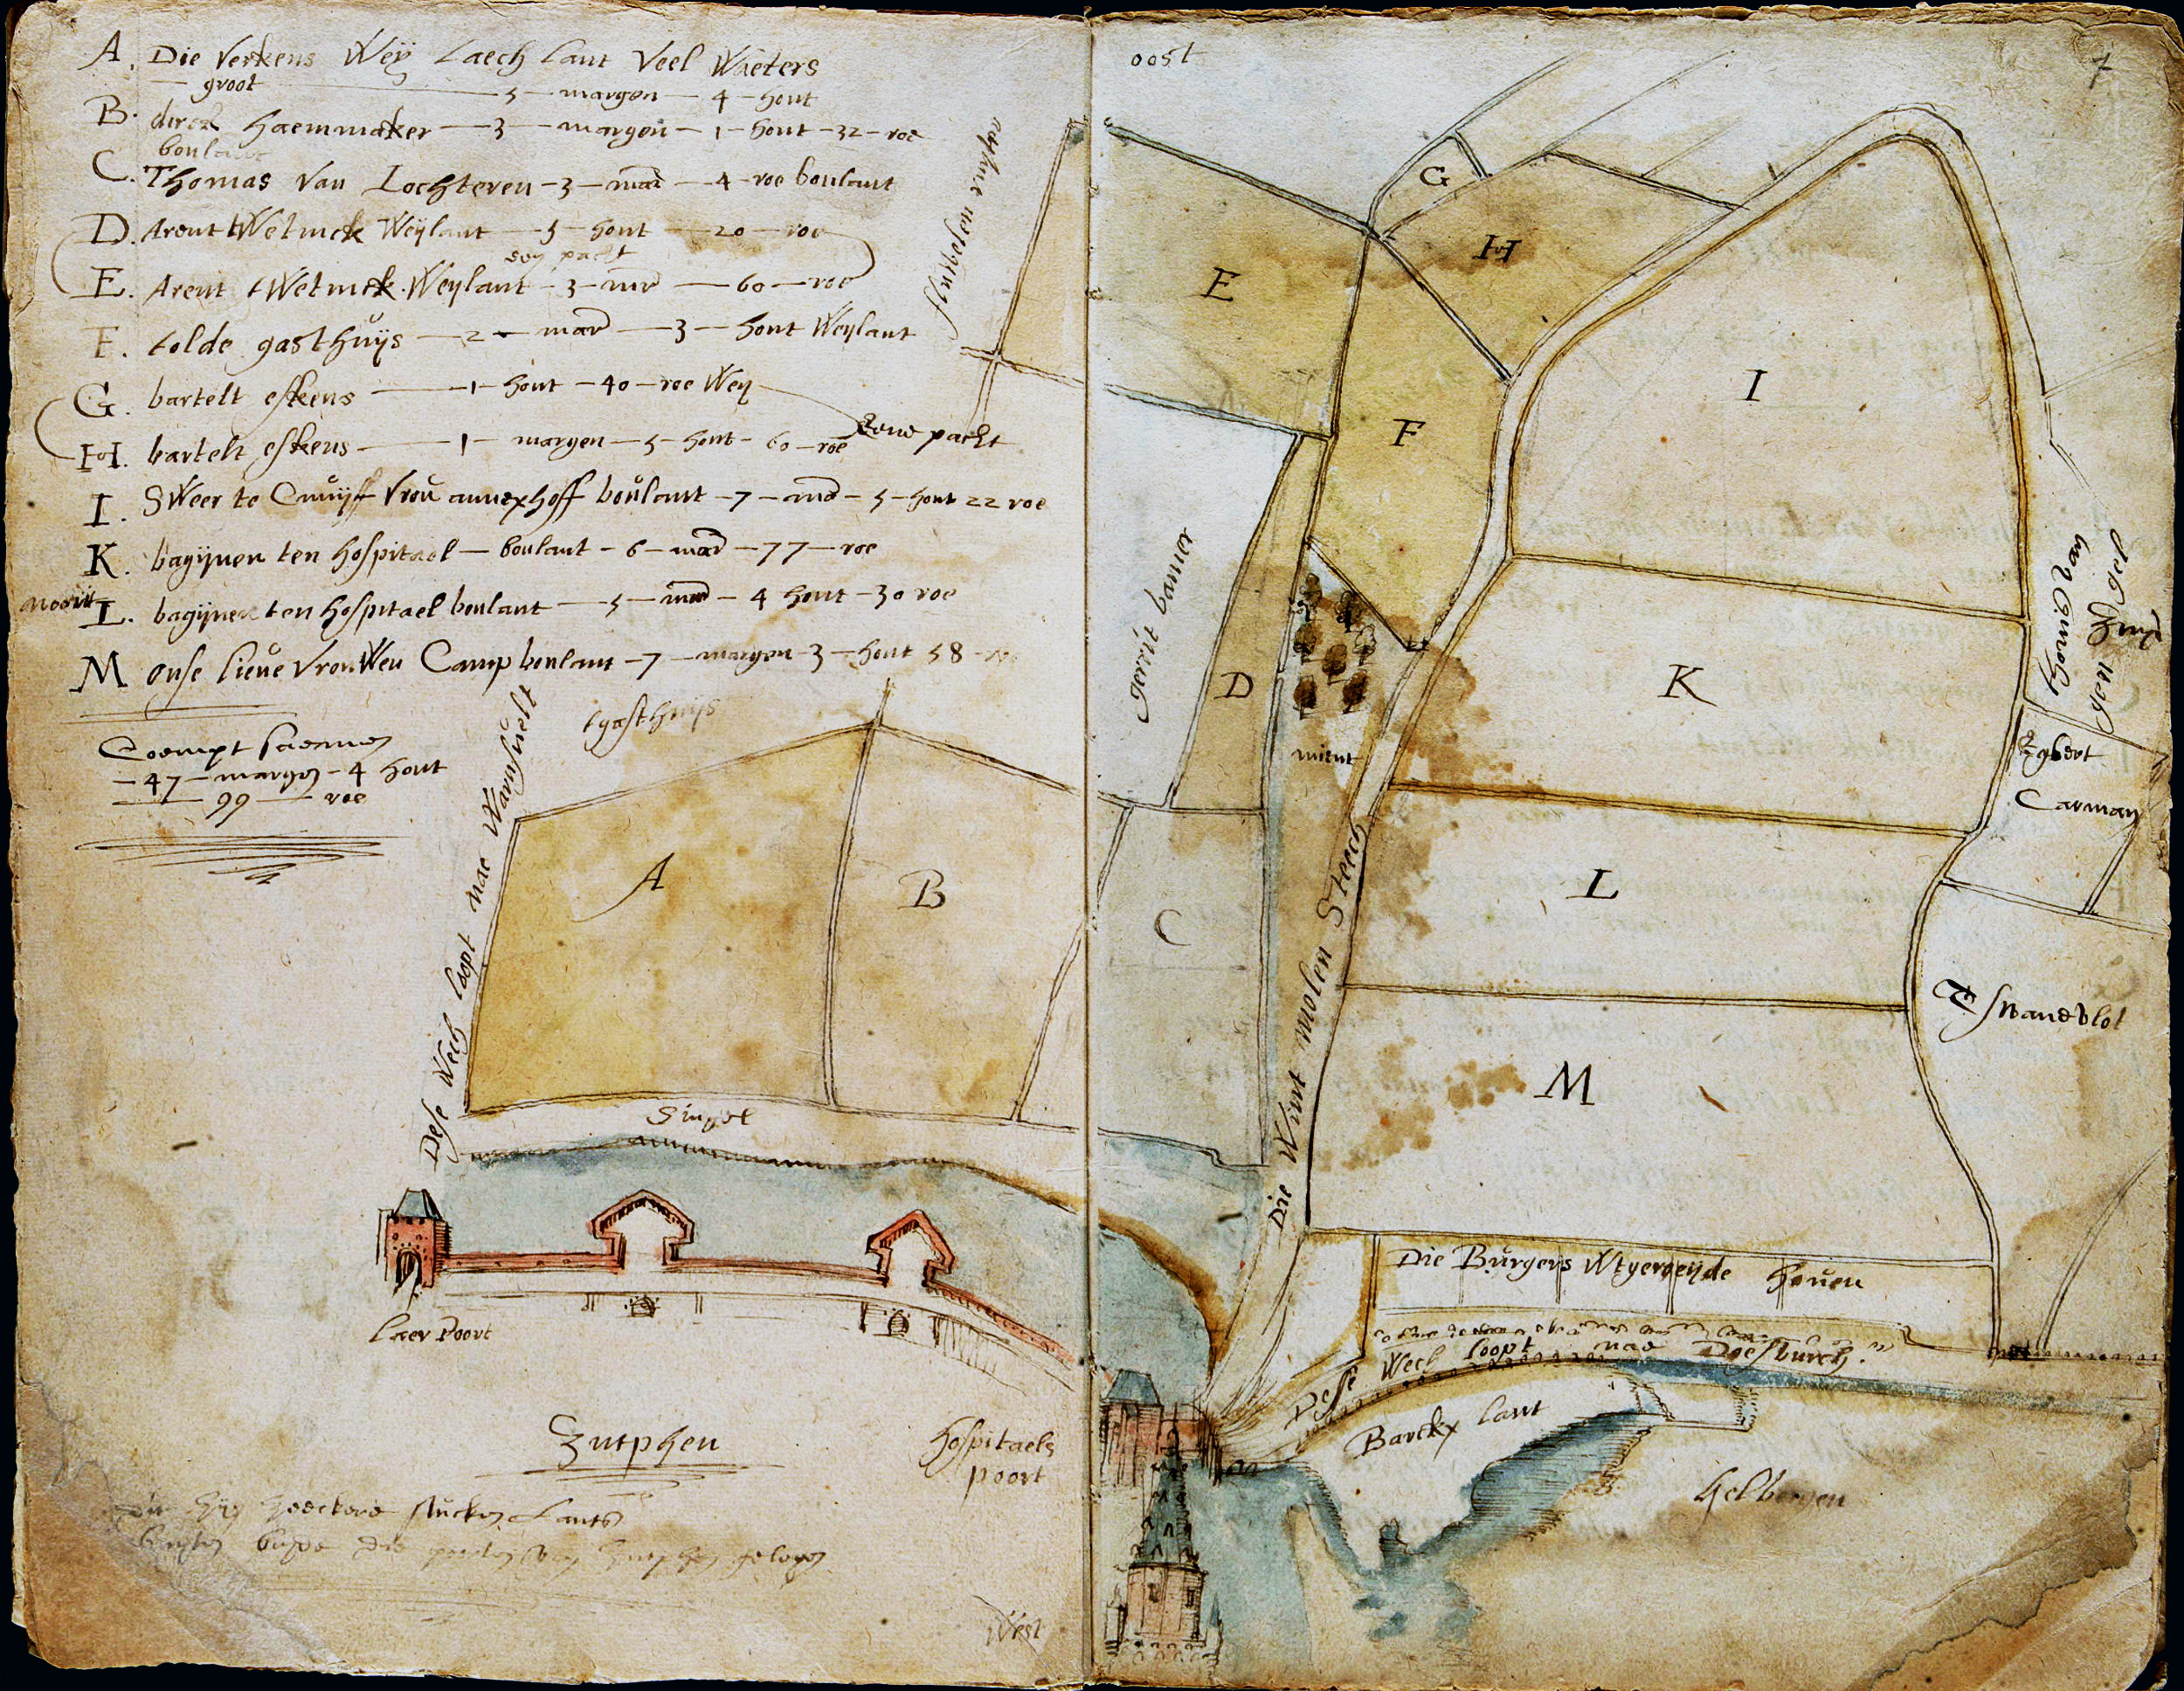 A. Die Verkens Weÿ Laech Lant Veel Waeters
— groot — 5 — margen — 4 — hont
B. dirck haemmaker — 3 — margen — 1 — hont — 32 — roe
boulant
C. Thomas Van Lochteren — 3 — mar — 4 — roe boulant
D. Arent tWelinck Weÿlant — 5 — hont — 20 — roe
een pacht
E. Arent tWelinck Weylant — 3 — mr — 60 — roe
F. tolde gasthuÿs — 2 — mar — 3 — hont Weylant
G. bartelt eskens — 1 — hont — 40 — roe Wey
H. bartelt eskens — 1 — margen — 5 — hont — 60 — roe
Eene pacht
I. SWeer te Cruijff Vrou annexhoff boulant — 7 — mar — 5 — hont 22 roe
K. bagijnen ten hospitael — boulant — 6 — mar — 77 — roe
Noort
L. bagijnen ten hospitael boulant — 5 — mar — 4 hont — 30 roe
M onse lieue VrouWen Camp boulant — 7 — margen — 3 — hont 58 — roe
Coempt saemen
— 47 — margen — 4 hont
— 99 — roe
tgasthuijs
Dese Wech loopt nae Warnsuelt
A
B
Singel
Laer Poort
Zutphen
hospitaels
poort
stucken Lants
gelegen
West
oost
7
E
G
H
I
F
gerrit banner
D
K
mient
L
C
M
Die Wint molen Steech
thomas van
Zuyd
Egbert
Carman
Die Burgers Wtgeroeÿde houen
Dese Wech loopt nae Doesburch
Barckx lant
helbergen